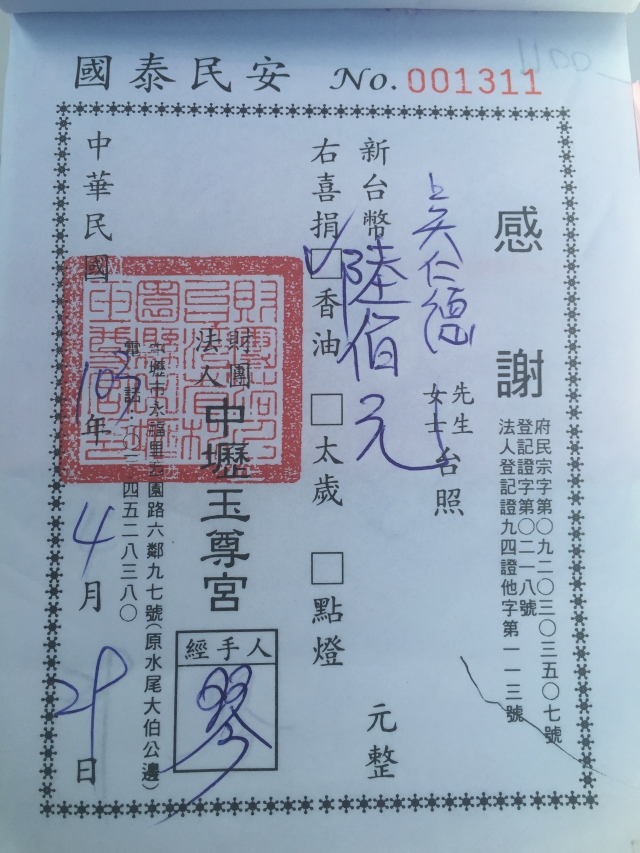 國泰民安 No. 001311
感謝
府民宗字第〇九二〇三〇三五〇七號
登記證字第〇二一八號
法人登記證九四證他字第一一三號
吳仁德 先生 女士 台照
新台幣 陸佰元 元整
右喜捐 ☑香油 □太歲 □點燈
財團法人 中壢玉尊宮
經手人
中壢市永福里 園路六鄰九七號(原水尾大伯公邊)
四五二八三八〇
中華民國 103年 4月 29日